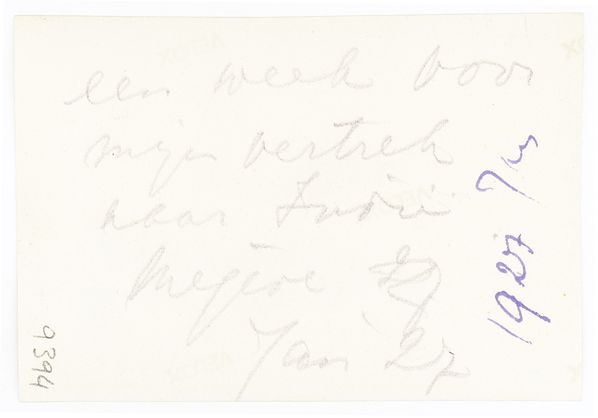 een week voor
mijn vertrek
naar Indië
Megève
Jan '27
1927
9394